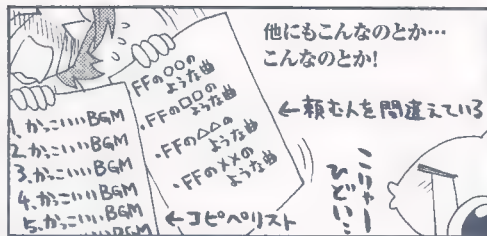 他にもこんなのとか…
こんなのとか!
FFの○○の
ような曲
・FFの□□の
ような曲
・FFの△△の
ような曲
・FFの××の
ような曲
←頼む人を間違えている
1.かっこいいBGM
2.かっこいいBGM
3.かっこいいBGM
4.かっこいいBGM
5.かっこいいBGM
←コピペリスト
こりゃー
ひどい…